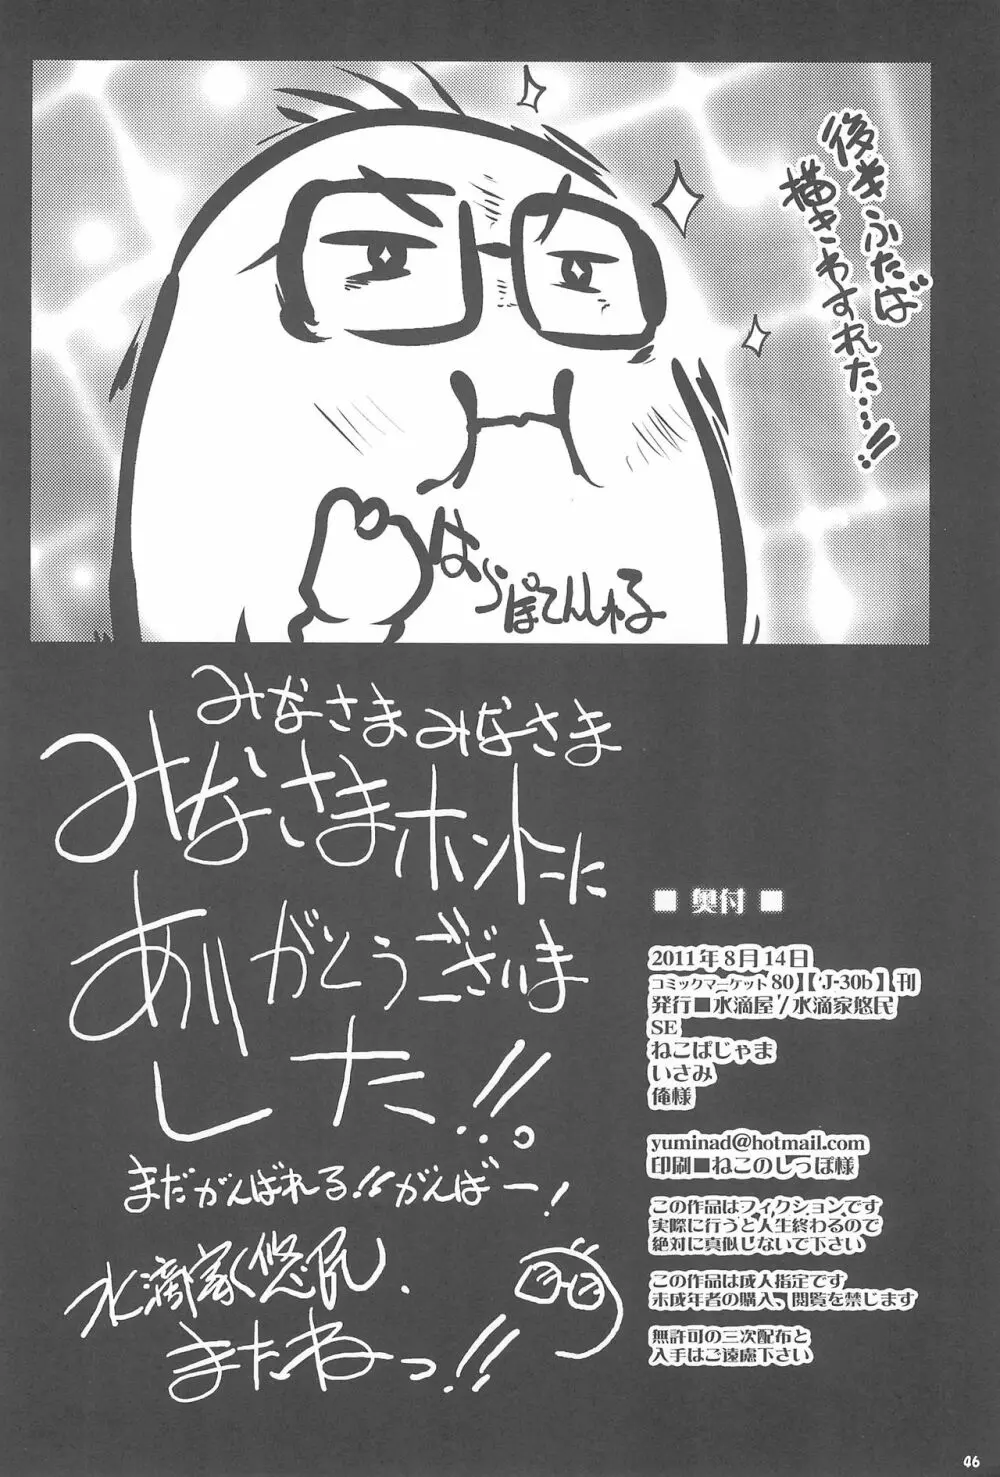 後半ふたば
描きわすれた…!!
はらぽてんしゃる
みなさまみなさま
みなさまホントーに
ありがとうございま
した!!。
まだがんばれる!!がんばー!
水滴家悠民、
またねっ!!
■ 奥付 ■
2011年8月14日
コミックマーケット80】【・J-30b】刊
発行■水滴屋/水滴家悠民
SE
ねこぱじゃま
いさみ
俺様
yuminad@hotmail.com
印刷■ねこのしっぽ様
この作品はフィクションです
実際に行うと人生終わるので
絶対に真似しないで下さい
この作品は成人指定です
未成年者の購入、閲覧を禁じます
無許可の三次配布と
入手はご遠慮下さい
46